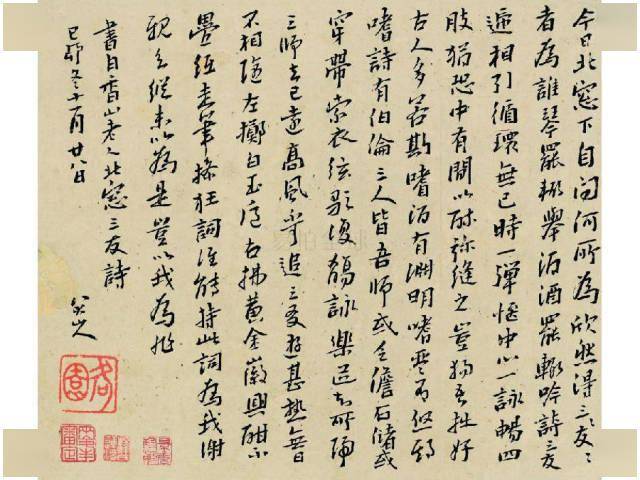 今日北窓下自問何所為欣然得三友〻
者為誰琴罷輒舉酒酒罷輒吟詩三友
遞相引循環無已時一彈愜中心一詠暢四
肢猶恐中有間以酎弥縫之豈獨吾拙好
古人多若斯嗜酒有淵明嗜琴有啟期
嗜詩有伯倫三人皆吾師或乏儋石儲或
穿帶索衣絃歌復觴詠樂道知所歸
三師去已遠高風不可追三友遊甚熟無日
不相隨左擲白玉巵右拂黃金徽興酣不
疊紙走筆操狂詞誰能持此詞為我謝
親知縱未以為是豈以我為非
書白香山老人北窓三友詩
己卯冬十一月廿八日
八大山人